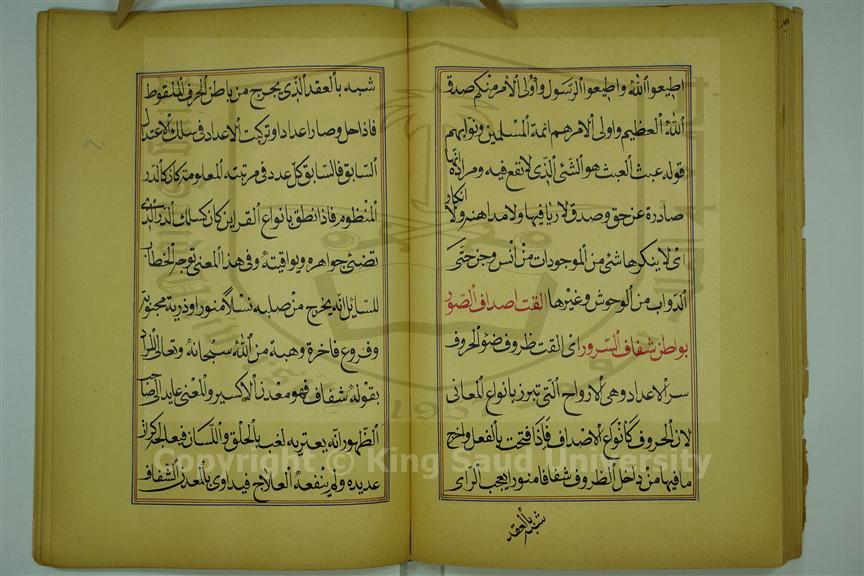 اطيعوا الله واطيعوا الرسول واولى الامر منكم صدق
الله العظيم واولى الامر هم ائمة المسلمين ونوابهم
قوله عبث العبث هو الشئ الذى لا نفع فيه ومراده انها
صادرة عن حق وصدق لا ريا فيها ولا مداهنه ولا انكار
اى لا ينكرها شئ من الموجودات من انس وجن حتى
الدواب من الوحوش وغيرها القت اصداف الصور
بواطن شفاف السرور اى القت ظروف ضو الحروف
سر الاعداد وهى الارواح التى تبرز بانواع المعانى
لان الحروف كانواع الاصداف فاذا فتحت بالفعل واخرج
ما فيها من داخل الظروف شفافا منورا يعجب الراى
شبه بالعقد
شبه بالعقد الذى يخرج من باطن الحرف الملقوط
فاذا حل وصار اعدادا وتركبت الاعداد فى سلك الاعتدال
السابق فالسابق كل عدد فى مرتبته المعلومة كان كالدر
المنظوم فاذا نطق بانواع القراين كان كسلك الدر الذى
تضئ جواهره ويواقيته وفى هذا المعنى توجه الخطاب
للسايل انه يخرج من صلبه نسلا منورا وذرية محبوبة
وفروع فاخرة وهبة من الله سبحانه وتعالى
بقوله شفاف فهو معدن الاكسير والمعنى عايد
الظهور انه يعتريه لغب بالحلق واللسان
عديده ولم ينفعه العلاج فيداوى بالمعدن الشفاف
Copyright © King Saud University